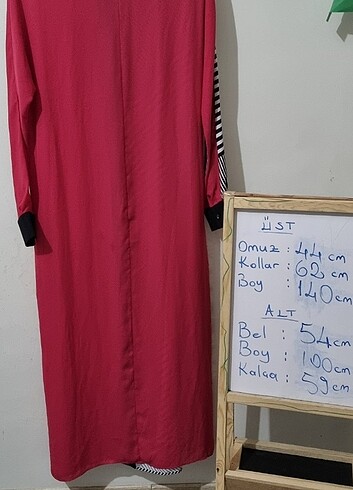 ÜST
Omuz : 44 cm
Kollar : 62 cm
Boy : 140 cm
ALT
Bel : 54 cm
Boy : 100 cm
Kalça : 59 cm